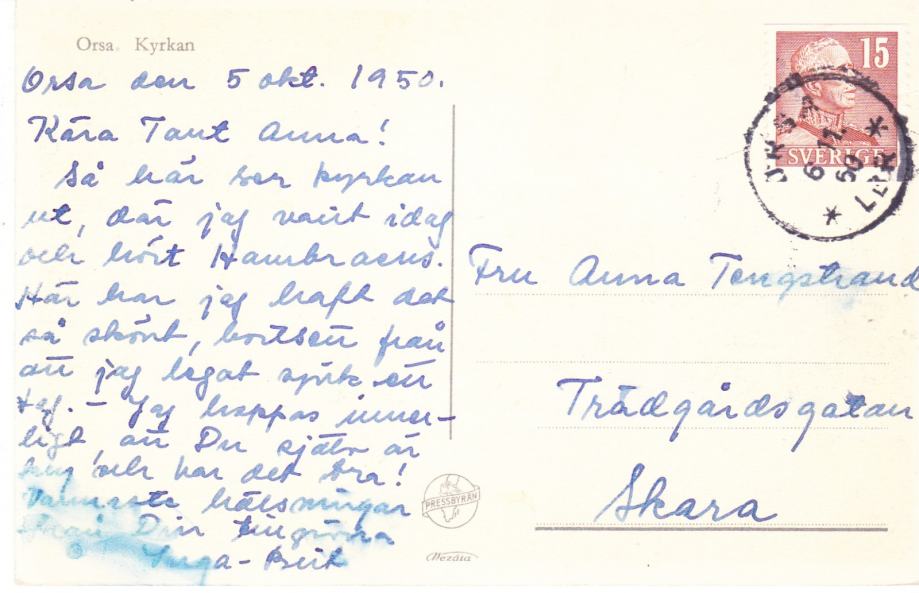 Orsa. Kyrkan
Orsa den 5 okt. 1950.
Kära Tant Anna!
Så här ser kyrkan
ut, där jag varit idag
och hört Hambraeus.
Här har jag haft det
så skönt, bortsett från
att jag legat sjuk ett
tag. – Jag hoppas inner-
ligt att Du själv är
och har det bra!
Varmaste hälsningar
från Din
Inga-Britt
15
SVERIGE
ORSA
6.11.
50
LBR
Fru Anna Tengstrand
Trädgårdsgatan
Skara
PRESSBYRÅN
Mezäta